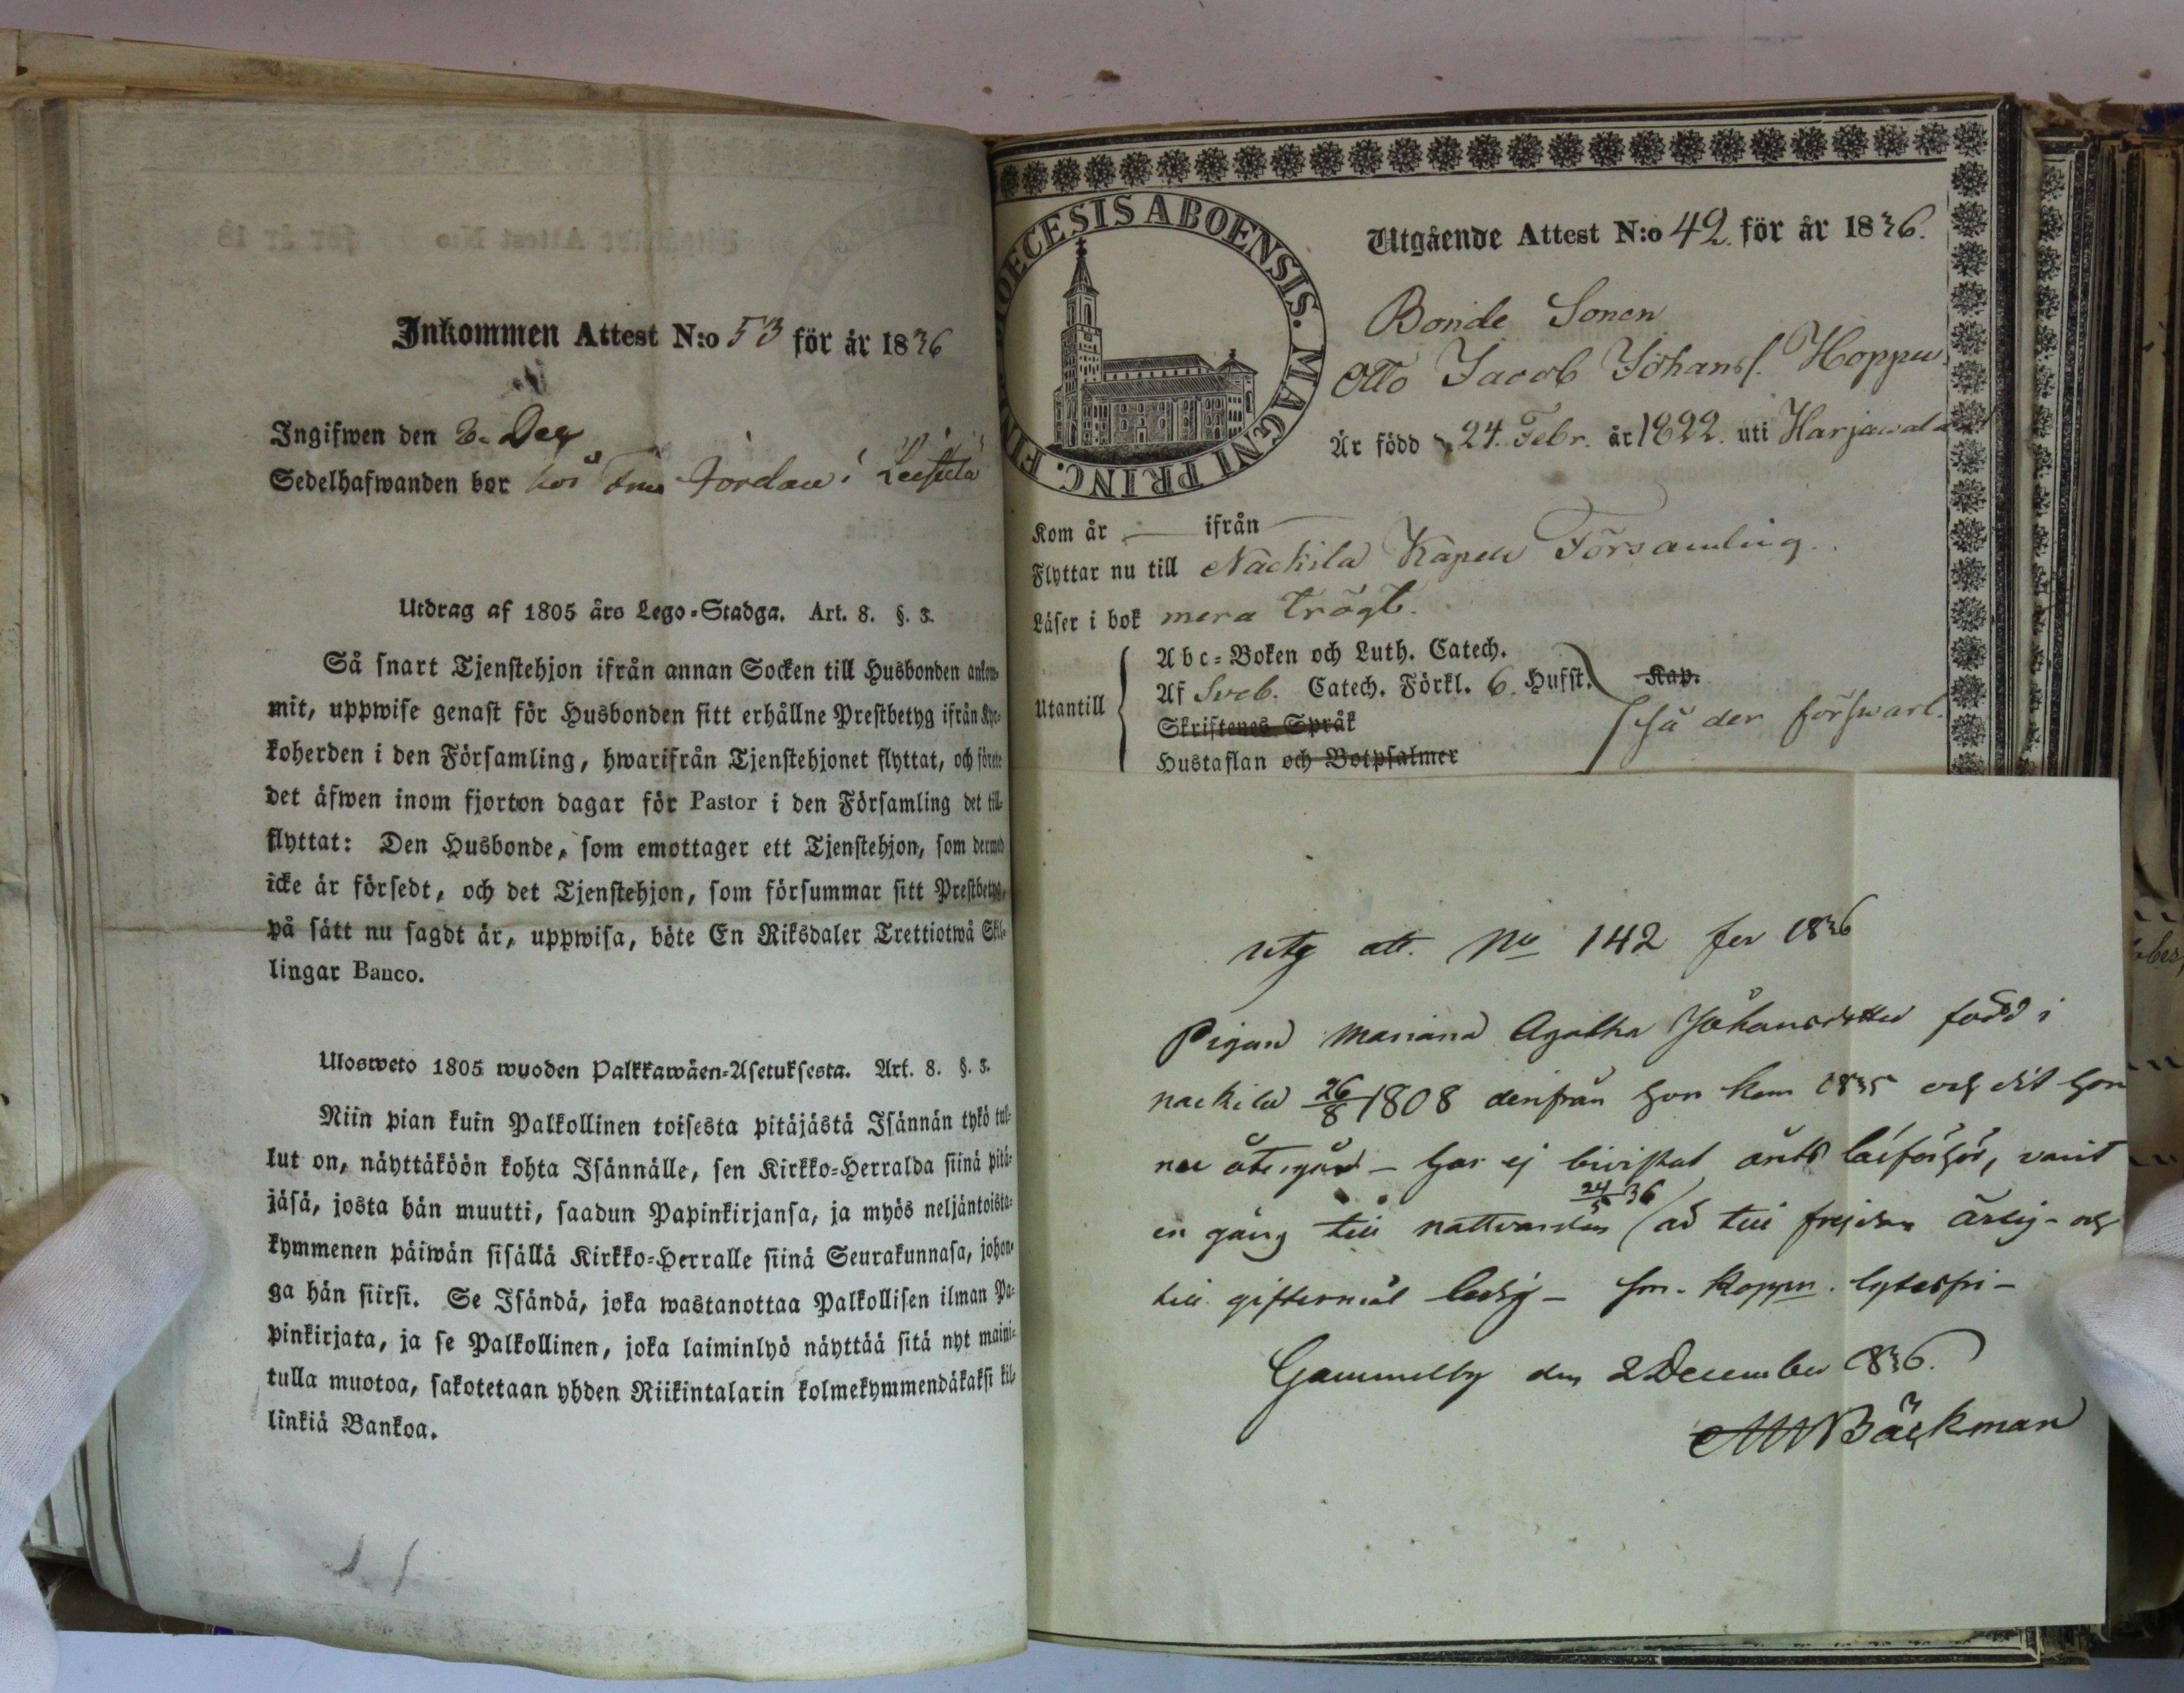 Inkommen Attest N:o 53 för år 1836
Ingifwen den 8. Dec
Sedelhafwanden bor hos Jordan i
Utdrag af 1805 års Lego-Stadga. Art. 8. §. 3.
Så snart Tjenstehjon ifrån annan Socken till Husbonden ankom-
mit, uppwise genast för Husbonden sitt erhållne Prestbetyg ifrån Kyr-
koherden i den Församling, hwarifrån Tjenstehjonet flyttat, och förete
det äfwen inom fjorton dagar för Pastor i den Församling det till-
flyttat: Den Husbonde, som emottager ett Tjenstehjon, som dermed
icke är försedt, och det Tjenstehjon, som försummar sitt Prestbetyg,
på sätt nu sagdt är, uppwisa, böte En Riksdaler Trettiotwå Skil-
lingar Banco.
Ulosweto 1805 wuoden Palkkawäen-Asetuksesta. Art. 8. §. 3.
Niin pian kuin Palkollinen toisesta pitäjästä Isännän tykö tul-
lut on, näyttäköön kohta Isännälle, sen Kirkko-Herralda siinä pitä-
jäsä, josta hän muutti, saadun Papinkirjansa, ja myös neljäntoista-
kymmenen päiwän sisällä Kirkko-Herralle siinä Seurakunnasa, johon-
ga hän siirsi. Se Isändä, joka wastanottaa Palkollisen ilman Pa-
pinkirjata, ja se Palkollinen, joka laiminlyö näyttää sitä nyt maini-
tulla muotoa, sakotetaan yhden Riikintalarin kolmekymmendäkaksi kil-
linkiä Bankoa.
DIOECESIS ABOENSIS. MAGNI PRINC. FINL.
Utgående Attest N:o 42. för år 1836.
Bonde Sonen
Otto Jacob Johanss. Hoppu
Är född d. 24. Febr. år 1822. uti Harjawalda
Kom år — ifrån —
Flyttar nu till Nackila Kapell Församling.
Läser i bok mera trögt.
Utantill
Abc-Boken och Luth. Catech.
Af Sveb. Catech. Förkl. 6. Hufst. Kap.
Skriftenes Språk
Hustaflan och Botpsalmer
Så der förswarl.
utg att. No 142 för 1836
Pigan Mariana Agatha Johansdotter född i
Nackila 26/8 1808 derifrån hon kom 1835 och dit hon
nu återgår – har ej bivistat årets läsförhör, varit
en gång till nattvarden 24/5 36 / är till frejden ärlig – och
till giftermål ledig – har. koppor. lytesfri –
Gammelby den 2 December 1836.
Bäckman